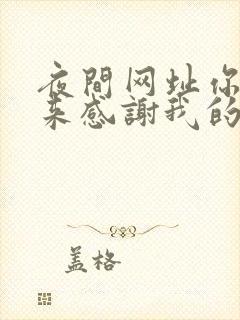 夜間网址你
来感謝我的
盖格